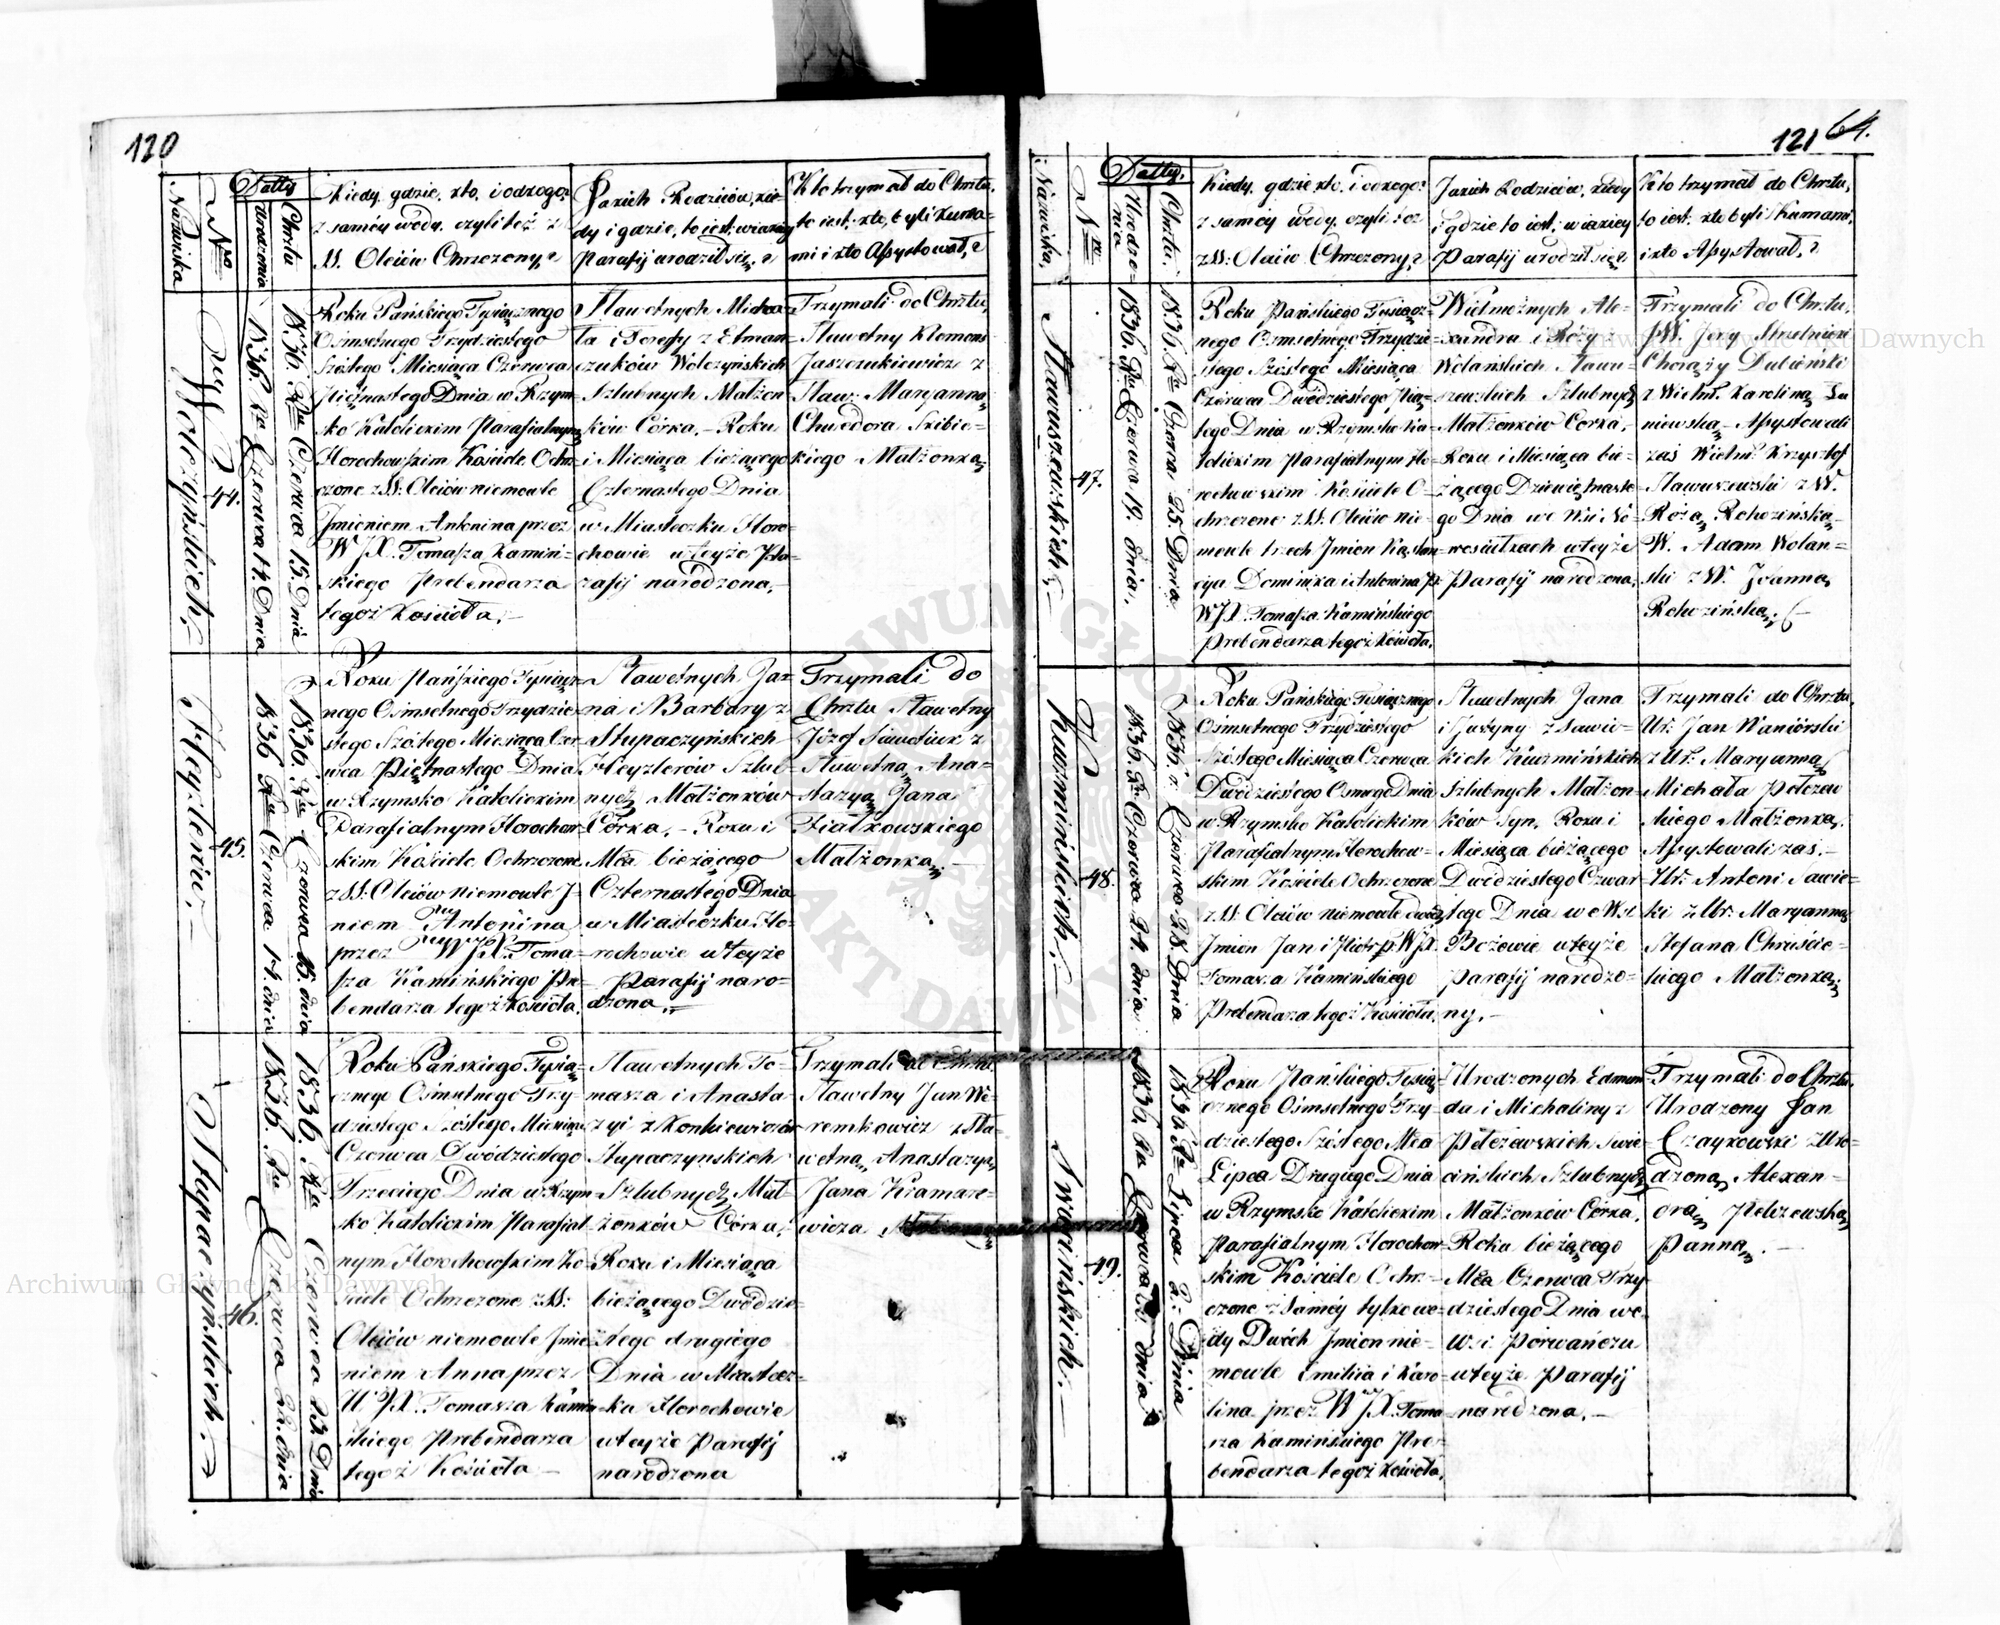 120
Nazwiska
Nro
Datty
Urodzenia
Chrztu
Kiedy, gdzie, kto, i od kogo?
z samey wody, czyli też z
SS. Oleiów Chrzczony,?
Jakich Rodziców, kie-
dy i gdzie, to iest: w iakiey
Parafij urodził się,?
Kto trzymał do Chrztu,
to iest: kto, byli kuma-
mi i kto Assystował,?
Wołczyńskich,
44.
1836. Ru Czerwca 14. Dnia
1836. Ru Czerwca 15. Dnia
Roku Pańskiego Tysiącznego
Ośmsetnego Trzydziestego
Szóstego Miesiąca Czerwca
Piętnastego Dnia w Rzym-
sko Katolickim Parafialnym
Horochowskim Kościele Ochrz-
czone z SS: Oleiów niemowle
Jmieniem Antonina przez
WJX. Tomasza Kamiń-
skiego Prebendarza
tegoż Kościoła,
Sławetnych Micha-
ła i Teressy z Etman-
czuków Wołczyńskich
Szlubnych Małżon
ków Córka, - Roku
i Miesiąca bieżącego
Czternastego Dnia
w Miasteczku Horo-
chowie w teyże Pa-
rafij narodzona,
Trzymali do Chrztu,
Sławetny Klemens
Jaszczukiewicz z
Sław: Maryanną
Chwedora Skibic-
kiego Małżonką,
Heyzlerów,
45.
1836 Ru Czerwca 14. dnia
1836. Ru Czerwca 15. dnia
Roku Pańskiego Tysiącz-
nego Ośmsetnego Trzydzie-
stego Szóstego Miesiąca Czer
wca Piętnastego Dnia
w Rzymsko Katolickim
Parafialnym Horochow-
skim Kościele Ochrzczone
z SS: Oleiów niemowle J-
niem Antonina
przez WJX. Toma-
sza Kamińskiego Pre-
bendarza tegoż Kościoła,
Sławetnych Ja-
na i Barbary z
Słupaczyńskich
Heyzlerów Szlub-
nych Małżonków
Córka, - Roku i
Mca bieżącego
Czternastego Dnia
w Miasteczku Ho-
rochowie w teyże
Parafij naro-
dzona,
Trzymali do
Chrztu Sławetny
Józef z
Sławetną Ana-
stazyą Jana
Fiałkowskiego
Małżonką,
Słupaczyńskich,
46.
1836. Ru Czerwca 22. dnia
1836. Ru Czerwca 23. Dnia
Roku Pańskiego Tysią-
cznego Ośmsetnego Trzy-
dziestego Szóstego Miesiąca
Czerwca Dwódziestego
Trzeciego Dnia w Rzym
sko Katolickim Parafial
nym Horochowskim Ko-
ściele Ochrzczone z SS:
Oleiów niemowle Jmie
niem Anna przez
WJX. Tomasza Kamiń
skiego Prebendarza
tegoż Kościoła
Sławetnych To-
masza i Anasta
zyi z Konkiewiczów
Słupaczynskich
Szlubnych Mał-
żonków Córka,
Roku i Miesiąca
bieżącego Dwódzie-
stego drugiego
Dnia w Miastecz-
ku Horochowie
w teyże Parafij
narodzona
Trzymali do Chrztu
Sławetny Jan We-
remkowicz z Sła-
wetną Anastazyą
Jana Kramare-
wicza
121 64.
Nazwiska,
Nro
Datty,
Urodze-
nia
Chrztu,
Kiedy, gdzie kto, i od kogo?
z samey wody, czyli też
z SS: Oleiów Chrzczony,?
Jakich Rodziców, kiedy
i gdzie to iest: w iakiey
Parafij urodził się,?
Kto trzymał do Chrztu,
to iest: kto byli Kumami,
i kto Assystował,?
Sławuszewskich,
47.
1836. Ru Czerwca 19. dnia,
1836. Ru Czerwca 25. Dnia
Roku Pańskiego Tysiącz-
nego Ośmsetnego Trzydzie-
stego Szóstego Miesiąca
Czerwca Dwódziestego Pią-
tego Dnia w Rzymsko Ka-
tolickim Parafialnym Ho-
rochowskim Kościele O-
chrzczone z SS. Oleiów nie-
mowle trzech Jmion Konstan
cyia Dominika i Antonina pz
WJX. Tomasza Kamińskiego
Prebendarza tegoż Kościoła,
Wielmożnych Ale-
xandra i Róży z
Wolańskich Sławu-
szewskich Szlubnych
Małżonków Corka,
Roku i Miesiąca bie-
żącego Dziewiętnaste-
go Dnia we Wsi No-
wosiułkach w teyże
Parafij narodzona,
Trzymali do Chrztu,
JW. Jerzy Strzelnicki
Chorąży Dubieński
z Wielm. Karoliną
niewską, Assystowali
zaś Wielm. Krzysztof
Sławuszewski z W.
Rożą Rohozińską,
W. Adam Wolań-
ski z W. Joanną
Rohozińską,
Kuzmińskich,
48.
1836. Ru Czerwca 24. dnia
1836. r. Czerwca 28. Dnia
Roku Pańskiego Tysiącznego
Ośmsetnego Trzydziestego
Szóstego Miesiąca Czerwca
Dwódziestego Osmego Dnia
w Rzymsko Katolickim
Parafialnym Horochow-
skim Kościele Ochrzczone
z SS. Oleiów niemowle dwóch
Jmion Jan i Piotr pz WJX.
Tomasza Kamińskiego
Prebendarza tegoż Kościoła,
Sławetnych Jana
i Justyny z Sawic-
kich Kuzmińskich
Szlubnych Małżon
ków Syn, Roku i
Miesiąca bieżącego
Dwódziestego Czwar
tego Dnia we Wsi
Bożewie w teyże
Parafij narodzo-
ny,
Trzymali do Chrztu,
Ur. Jan Naniórski
z Ur. Maryanną
Michała Pełczew
skiego Małżonką,
Assystowali zaś
Ur. Antoni Sawic-
ki z Ur. Maryanną
Stefana Chruście-
kiego Małżonką,
Swiacińskich,
49.
1836. Ru Czerwca 30. dnia
1836 Ru Lipca 2. Dnia
Roku Pańskiego Tysią
cznego Ośmsetnego Trzy-
dziestego Szóstego Mca
Lipca Drugiego Dnia
w Rzymsko Katolickim
Parafialnym Horochow-
skim Kościele Ochrz-
czone z Samey tylko wo-
dy Dwóch Jmion nie-
mowle Emilia i Karo-
lina przez WJX. Toma
sza Kamińskiego Pre-
bendarza tegoż Kościoła,
Urodzonych Edmun-
da i Michaliny z
Pełczewskich Swia-
cińskich Szlubnych
Małżonków Córka,
Roku bieżącego
Mca Czerwca Trzy
dziestego Dnia we
W. i Porwańczu
w teyże Parafij
narodzona,
Trzymali do Chrztu,
Urodzony Jan
Czaykowski z Uro-
dzoną Alexan-
drą Pełczewską
Panną,
Archiwum Główne Akt Dawnych
Archiwum Główne Akt Dawnych
ARCHIWUM GŁÓWNE AKT DAWNYCH